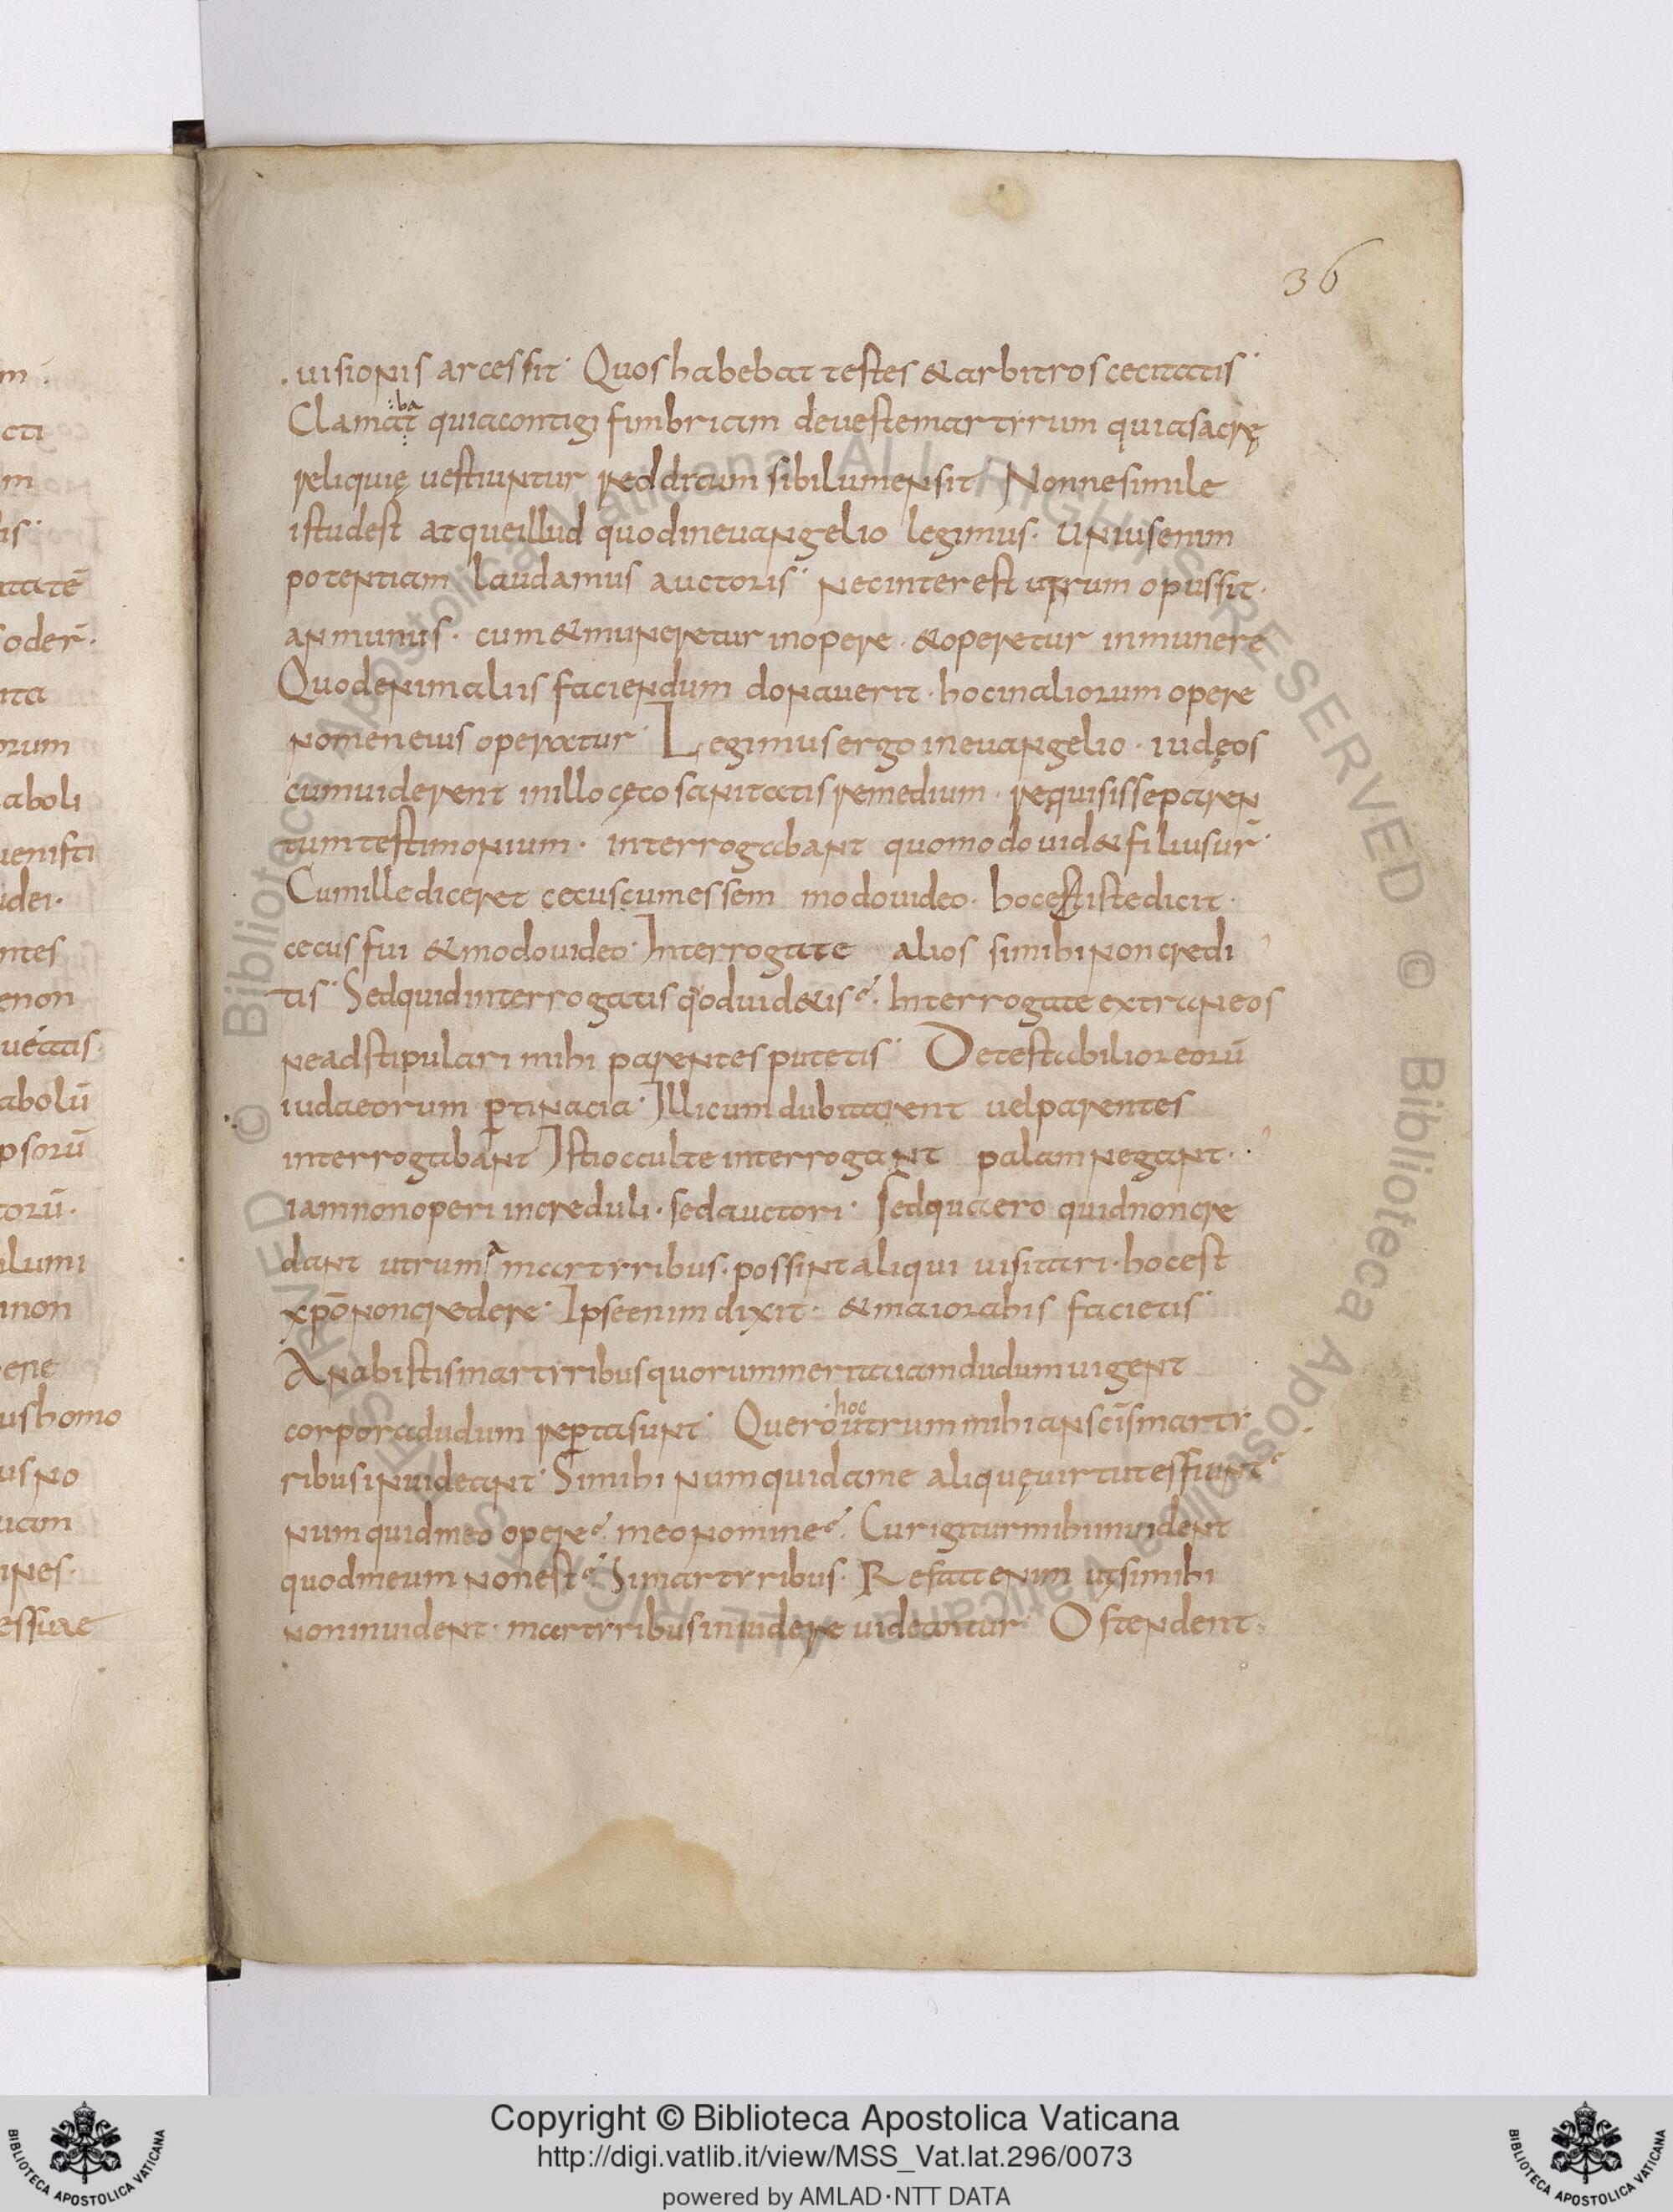 36
uisionis arcessit Quos habebat testes & arbitros cecitatis
Clamat ba quia contigi fimbriam de ueste martyrum qui a sacrę
reliquię uestiuntur redditum sibi lumen sit Nonne simile
istud est atque illud quod in euangelio legimus. Unius enim
potentiam laudamus auctoris nec interest utrum opus sit.
an munus. cum & muneretur in opere. & operetur in munere
Quod enim aliis faciendum donauerit. hoc in aliorum opere
nomen eius operatur Legimus ergo in euangelio. iudęos
cum uiderent in illo cęco sanitatis remedium. requisisse paren
tum testimonium. interrogabant quomodo uid& filius ur̄
Cum ille diceret cecus cum essem modo uideo. hoc est iste dicit.
cecus fui & modo uideo. Interrogate alios si mihi non credi
tis Sed quid interrogatis qod uid&is. Interrogate extraneos
ne adstipulari mihi parentes putetis Detestabilior eorū
iudaeorum ꝑtinacia. Illi cum dubitarent uel parentes
interrogabant Isti occulte interrogant palam negant.
iam non operi increduli. sed auctori. Sed quaero quid non cre
dant utrum a martyribus. possint aliqui uisitari. hoc est
xp̄o non credere. Ipse enim dixit. & maiora his facietis
An ab istis martyribus quorum merita iam dudum uigent
corpora dudum reꝑta sunt. Quero hoc utrum mihi an sc̄is marty
ribus inuideant. Si mihi numquid a me aliquę uirtutes fiunt
numquid meo opere meo nomine. Cur igitur mihi inuident
quod meum non est Si martyribus. Restat enim ut si mihi
non inuident. martyribus inuidere uideantur Ostendent.
m
cti
m
is
tatē
oder̄.
ita
orum
aboli
uenisti
dei.
ntes
enon
uetas
abolū
psorū
torū.
lumi
non
ene
us homo
us no
uam
ines.
essure
© Biblioteca Apostolica Vaticana ALL RIGHTS RESERVED
© Biblioteca Apostolica Vaticana ALL RIGHTS RESERVED
Copyright © Biblioteca Apostolica Vaticana
http://digi.vatlib.it/view/MSS_Vat.lat.296/0073
powered by AMLAD·NTT DATA
BIBLIOTECA APOSTOLICA VATICANA
BIBLIOTECA APOSTOLICA VATICANA